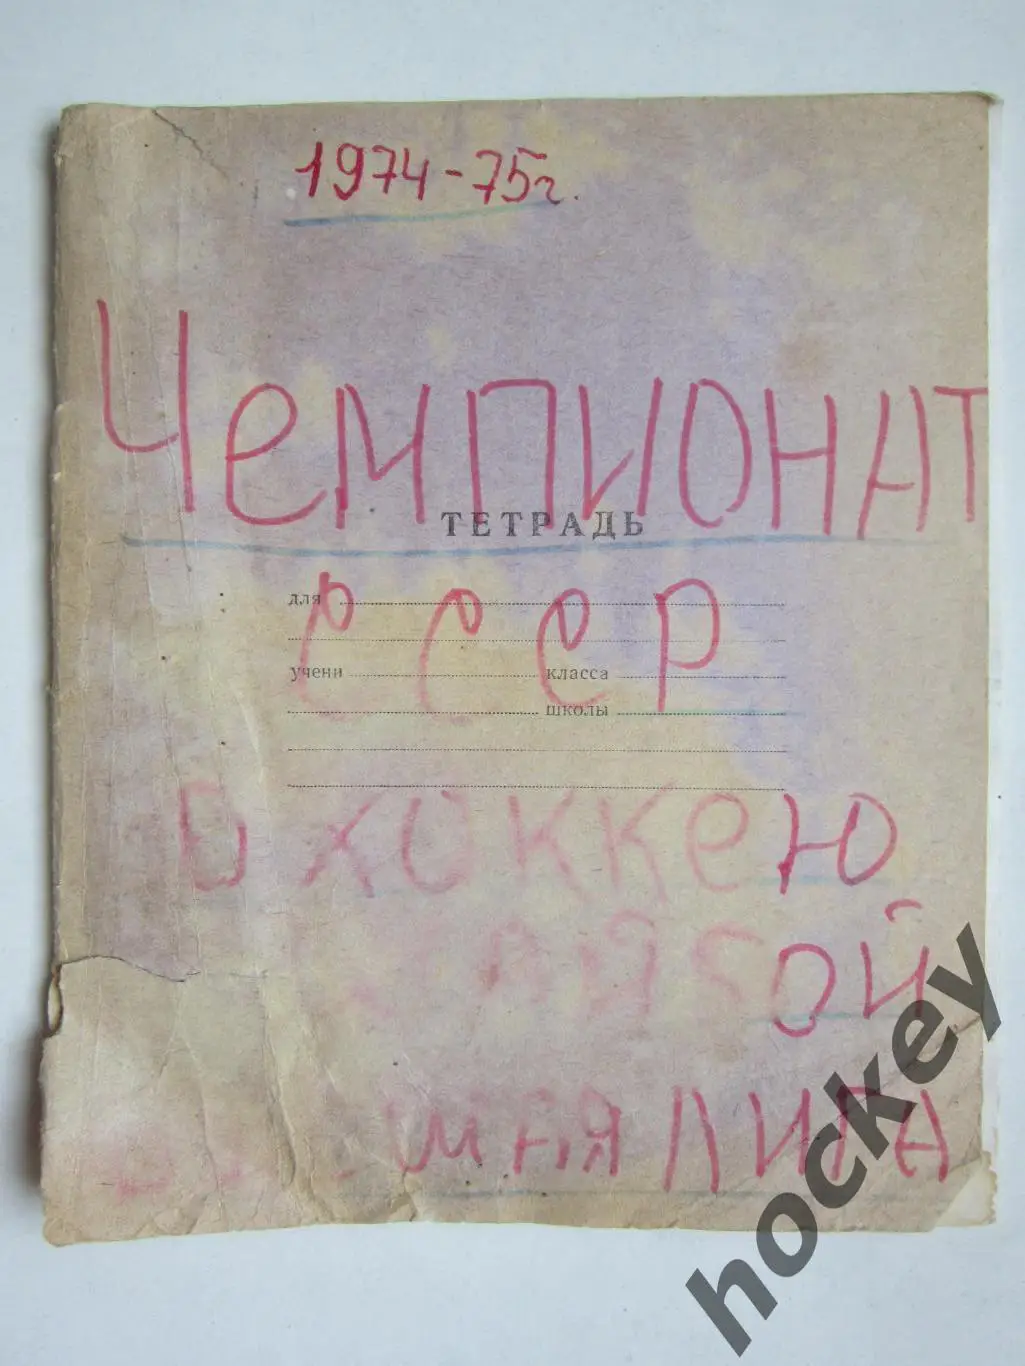 1974-75г.
Чемпионат
ТЕТРАДЬ
СССР
для
учени класса
школы
хоккею
шайбой
лига
hockey